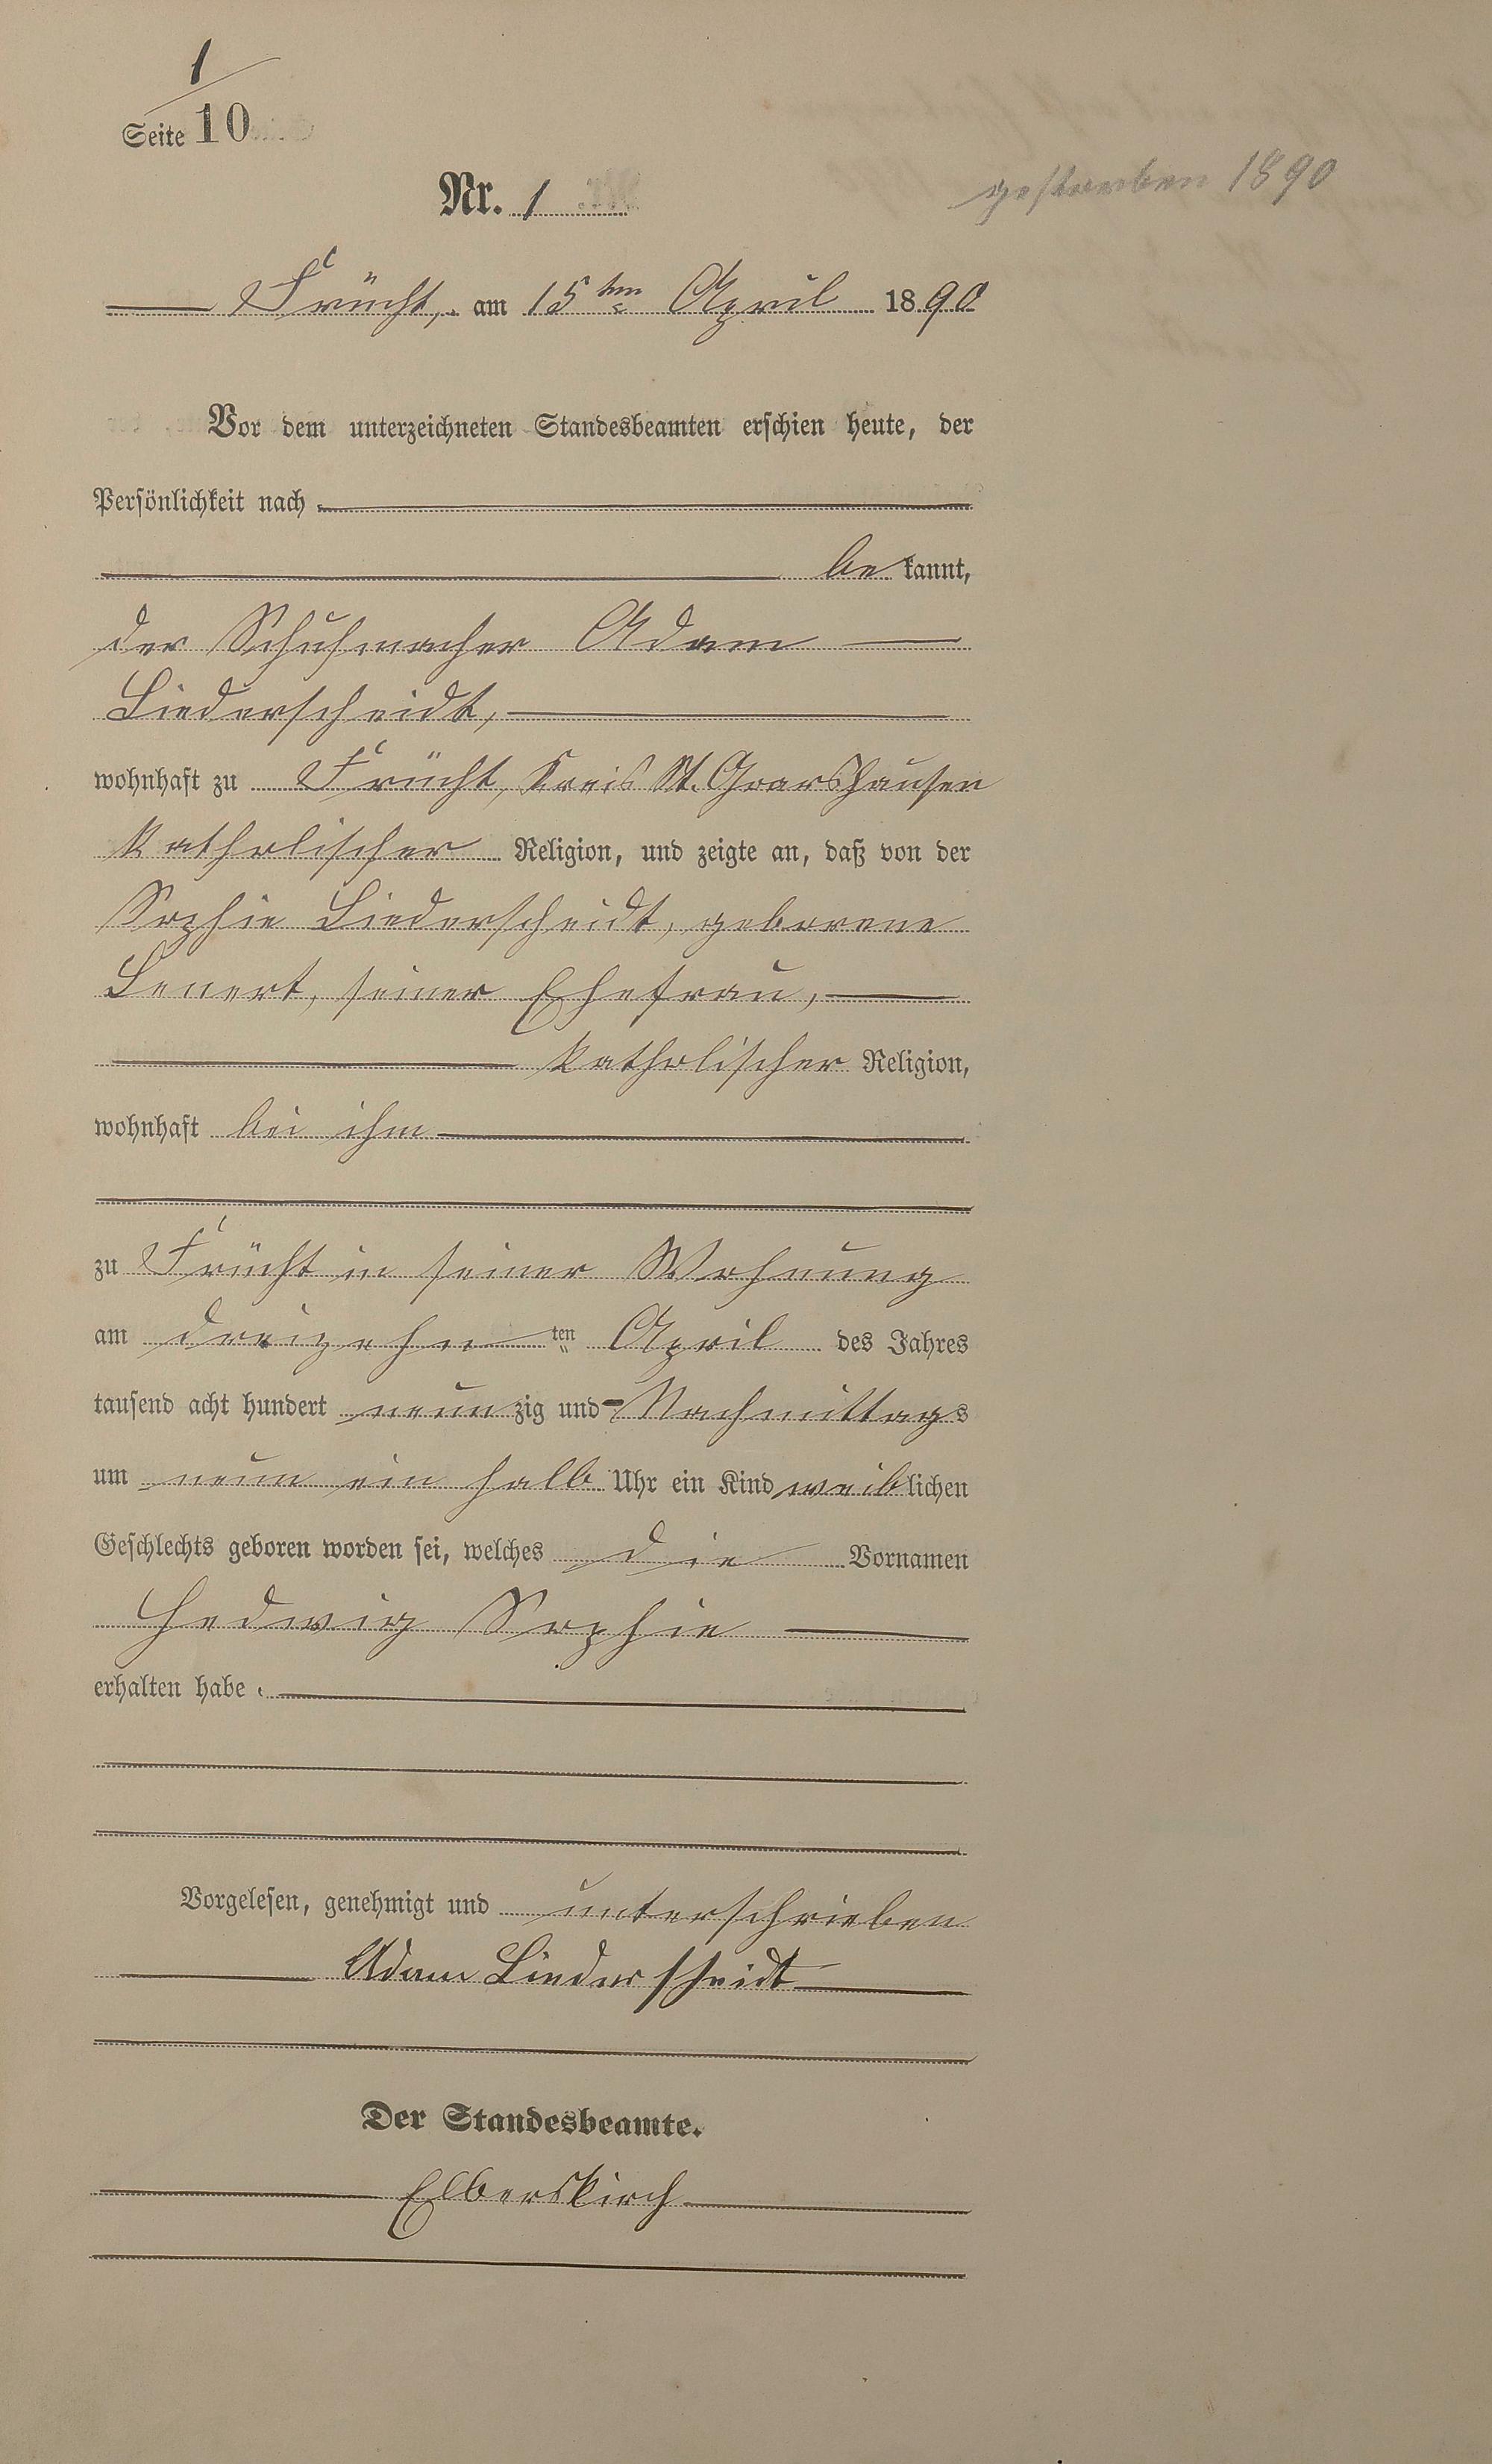 1
Seite 10
Nr. 1
gestorben 1890
Frücht, am 15ten April 1890
Vor dem unterzeichneten Standesbeamten erschien heute, der
Persönlichkeit nach
bekannt,
der Schuhmacher Adam
Liederscheidt,
wohnhaft zu Frücht, Kreis St. Goarshausen
katholischer Religion, und zeigte an, daß von der
Sophie Liederscheidt, geborene
Lenert, seiner Ehefrau,
katholischer Religion,
wohnhaft bei ihm
zu Frücht in seiner Wohnung
am dreizehnten April des Jahres
tausend acht hundert neunzig und Nachmittags
um neun ein halb Uhr ein Kind weiblichen
Geschlechts geboren worden sei, welches die Vornamen
Hedwig Sophie
erhalten habe.
Vorgelesen, genehmigt und unterschrieben
Adam Liederscheidt
Der Standesbeamte.
Elberskirch